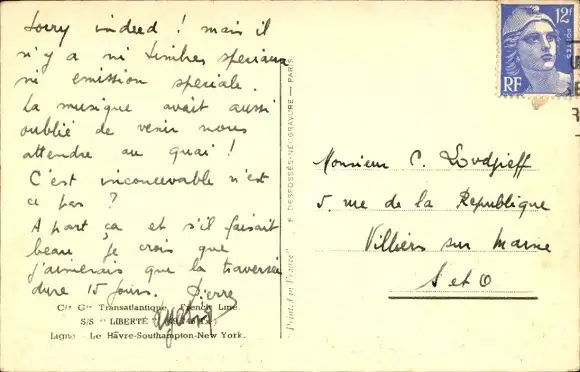 Sorry indeed ! mais il
n'y a ni timbres speciaux
ni emission speciale.
La musique avait aussi
oublié de venir nous
attendre au quai !
C'est inconcevable n'est
ce pas ?
A part ça et s'il faisait
beau je crois que
j'aimerais que la traversée
dure 15 jours. Pierre
Cie Gle Transatlantique French Line
S/S "LIBERTÉ"
Ligne Le Hâvre-Southampton-New York.
"Printed in France"
E. DESFOSSÉS-NÉOGRAVURE — PARIS
12F
POSTES
RF
Monsieur C. Lovdjieff
5. rue de la Republique
Villiers sur Marne
S et O